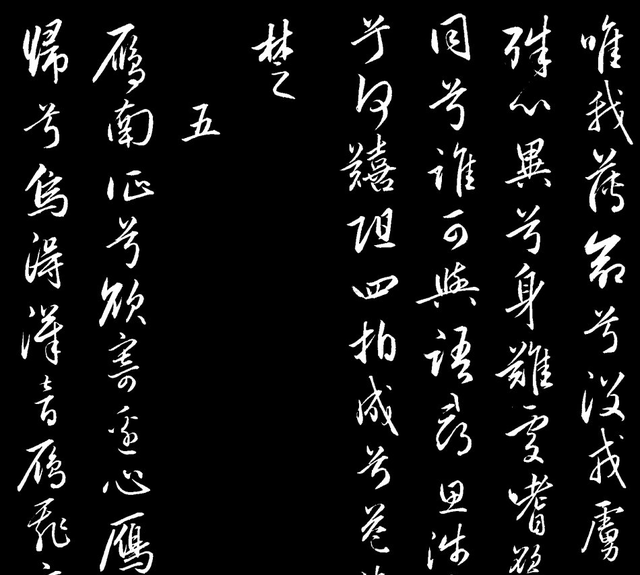 唯我薄命兮沒戎虜
殊心異兮身難處嗜欲
同兮誰可與語尋思涉
兮何囏阻四拍成兮益
楚
五
鴈南征兮欲寄邊心鴈
歸兮為得漢音鴈飛